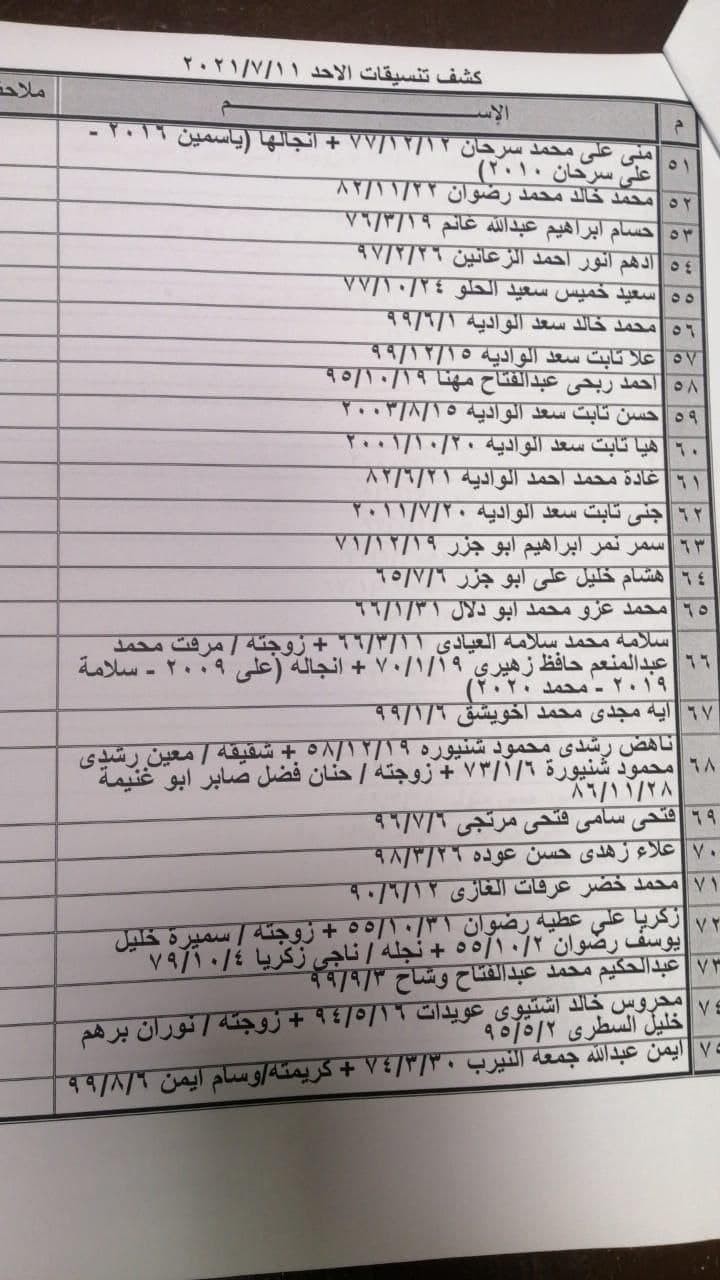 كشف تنسيقات الاحد ٢٠٢١/٧/١١
م الإســــم ملاحظ
٥١ منى على محمد سرحان ٧٧/١٢/١٢ + انجالها (ياسمين ٢٠١٦ -
على سرحان ٢٠١٠)
٥٢ محمد خالد محمد رضوان ٨٢/١١/٢٢
٥٣ حسام ابراهيم عبدالله غانم ٧٦/٣/١٩
٥٤ ادهم انور احمد الزعانين ٩٧/٢/٢٦
٥٥ سعيد خميس سعيد الحلو ٧٧/١٠/٢٤
٥٦ محمد خالد سعد الواديه ٩٩/٦/١
٥٧ علا ثابت سعد الواديه ٩٩/١٢/١٥
٥٨ احمد ربحى عبدالفتاح مهنا ٩٥/١٠/١٩
٥٩ حسن ثابت سعد الواديه ٢٠٠٣/٨/١٥
٦٠ هيا ثابت سعد الواديه ٢٠٠١/١٠/٢٠
٦١ غادة محمد احمد الواديه ٨٢/٦/٢١
٦٢ جنى ثابت سعد الواديه ٢٠١١/٧/٢٠
٦٣ سمر نمر ابراهيم ابو جزر ٧١/١٢/١٩
٦٤ هشام خليل على ابو جزر ٦٥/٧/٦
٦٥ محمد عزو محمد ابو دلال ٦٦/١/٣١
٦٦ سلامه محمد سلامه العيادى ٦٦/٣/١١ + زوجته / مرفت محمد
عبدالمنعم حافظ زهيرى ٧٠/١/١٩ + انجاله (على ٢٠٠٩ - سلامة
٢٠١٩ - محمد ٢٠٢٠)
٦٧ ايه مجدى محمد اخويشق ٩٩/١/٦
٦٨ ناهض رشدى محمود شنيوره ٥٨/١٢/١٩ + شقيقه / معين رشدى
محمود شنيورة ٧٣/١/٦ + زوجته / حنان فضل صابر ابو غنيمة
٨٦/١١/٢٨
٦٩ فتحى سامى فتحى مرتجى ٩٦/٧/٦
٧٠ علاء زهدى حسن عوده ٩٨/٣/٢٦
٧١ محمد خضر عرفات الغازى ٩٠/٦/١٢
٧٢ زكريا على عطيه رضوان ٥٥/١٠/٣١ + زوجته / سميرة خليل
يوسف رضوان ٥٥/١٠/٢ + نجله / ناجى زكريا ٧٩/١٠/٤
٧٣ عبدالحكيم محمد عبدالفتاح وشاح ٩٩/٩/٣
٧٤ محروس خالد اشتيوى عويدات ٩٤/٥/١٦ + زوجته / نوران برهم
خليل السطرى ٩٥/٥/٢
٧٥ ايمن عبدالله جمعه النيرب ٧٤/٣/٣٠ + كريمته/وسام ايمن ٩٩/٨/٦